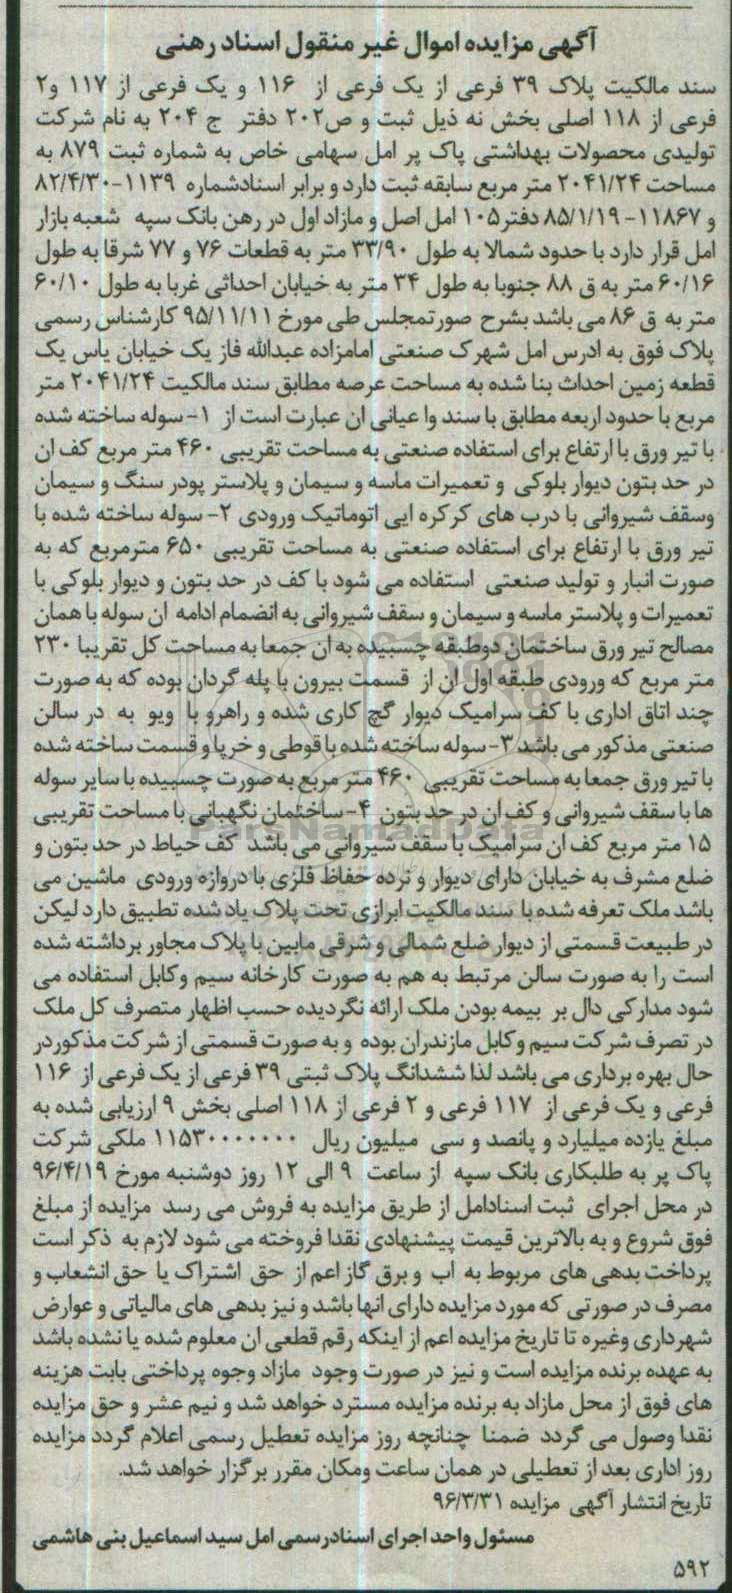 آگهی مزایده اموال غیر منقول اسناد رهنی
سند مالکیت پلاک ۳۹ فرعی از یک فرعی از ۱۱۶ و یک فرعی از ۱۱۷ و۲
فرعی از ۱۱۸ اصلی بخش نه ذیل ثبت و ص۲۰۲ دفتر ج ۲۰۴ به نام شرکت
تولیدی محصولات بهداشتی پاک پر امل سهامی خاص به شماره ثبت ۸۷۹ به
مساحت ۲۰۴۱/۲۴ متر مربع سابقه ثبت دارد و برابر اسنادشماره ۱۱۳۹-۸۲/۴/۳۰
و ۱۱۸۶۷-۸۵/۱/۱۹ دفتر۱۰۵ امل اصل و مازاد اول در رهن بانک سپه شعبه بازار
امل قرار دارد با حدود شمالا به طول ۳۳/۹۰ متر به قطعات ۷۶ و ۷۷ شرقا به طول
۶۰/۱۶ متر به ق ۸۸ جنوبا به طول ۳۴ متر به خیابان احداثی غربا به طول ۶۰/۱۰
متر به ق ۸۶ می باشد بشرح صورتمجلس طی مورخ ۹۵/۱۱/۱۱ کارشناس رسمی
پلاک فوق به ادرس امل شهرک صنعتی امامزاده عبدالله فاز یک خیابان یاس یک
قطعه زمین احداث بنا شده به مساحت عرصه مطابق سند مالکیت ۲۰۴۱/۲۴ متر
مربع با حدود اربعه مطابق با سند وا عیانی ان عبارت است از ۱- سوله ساخته شده
با تیر ورق با ارتفاع برای استفاده صنعتی به مساحت تقریبی ۴۶۰ متر مربع کف ان
در حد بتون دیوار بلوکی و تعمیرات ماسه و سیمان و پلاستر پودر سنگ و سیمان
وسقف شیروانی با درب های کرکره ایی اتوماتیک ورودی ۲- سوله ساخته شده با
تیر ورق با ارتفاع برای استفاده صنعتی به مساحت تقریبی ۶۵۰ مترمربع که به
صورت انبار و تولید صنعتی استفاده می شود با کف در حد بتون و دیوار بلوکی با
تعمیرات و پلاستر ماسه و سیمان و سقف شیروانی به انضمام ادامه ان سوله با همان
مصالح تیر ورق ساختمان دوطبقه چسبیده به ان جمعا به مساحت کل تقریبا ۲۳۰
متر مربع که ورودی طبقه اول ان از قسمت بیرون با پله گردان بوده که به صورت
چند اتاق اداری با کف سرامیک دیوار گچ کاری شده و راهرو با ویو به در سالن
صنعتی مذکور می باشد ۳- سوله ساخته شده با قوطی و خرپا و قسمت ساخته شده
با تیر ورق جمعا به مساحت تقریبی ۴۶۰ متر مربع به صورت چسبیده با سایر سوله
ها با سقف شیروانی و کف ان در حد بتون ۴- ساختمان نگهبانی با مساحت تقریبی
۱۵ متر مربع کف ان سرامیک با سقف شیروانی می باشد کف حیاط در حد بتون و
ضلع مشرف به خیابان دارای دیوار و نرده حفاظ فلزی با دروازه ورودی ماشین می
باشد ملک تعرفه شده با سند مالکیت ابرازی تحت پلاک یاد شده تطبیق دارد لیکن
در طبیعت قسمتی از دیوار ضلع شمالی و شرقی مابین با پلاک مجاور برداشته شده
است را به صورت سالن مرتبط به هم به صورت کارخانه سیم وکابل استفاده می
شود مدارکی دال بر بیمه بودن ملک ارائه نگردیده حسب اظهار متصرف کل ملک
در تصرف شرکت سیم وکابل مازندران بوده و به صورت قسمتی از شرکت مذکوردر
حال بهره برداری می باشد لذا ششدانگ پلاک ثبتی ۳۹ فرعی از یک فرعی از ۱۱۶
فرعی و یک فرعی از ۱۱۷ فرعی و ۲ فرعی از ۱۱۸ اصلی بخش ۹ ارزیابی شده به
مبلغ یازده میلیارد و پانصد و سی میلیون ریال ۱۱۵۳۰۰۰۰۰۰۰ ملکی شرکت
پاک پر به طلبکاری بانک سپه از ساعت ۹ الی ۱۲ روز دوشنبه مورخ ۹۶/۴/۱۹
در محل اجرای ثبت اسنادامل از طریق مزایده به فروش می رسد مزایده از مبلغ
فوق شروع و به بالاترین قیمت پیشنهادی نقدا فروخته می شود لازم به ذکر است
پرداخت بدهی های مربوط به اب و برق گاز اعم از حق اشتراک یا حق انشعاب و
مصرف در صورتی که مورد مزایده دارای انها باشد و نیز بدهی های مالیاتی و عوارض
شهرداری وغیره تا تاریخ مزایده اعم از اینکه رقم قطعی ان معلوم شده یا نشده باشد
به عهده برنده مزایده است و نیز در صورت وجود مازاد وجوه پرداختی بابت هزینه
های فوق از محل مازاد به برنده مزایده مسترد خواهد شد و نیم عشر و حق مزایده
نقدا وصول می گردد ضمنا چنانچه روز مزایده تعطیل رسمی اعلام گردد مزایده
روز اداری بعد از تعطیلی در همان ساعت ومکان مقرر برگزار خواهد شد.
تاریخ انتشار آگهی مزایده ۹۶/۳/۳۱
مسئول واحد اجرای اسنادرسمی امل سید اسماعیل بنی هاشمی
۵۹۲
ParsNamadData